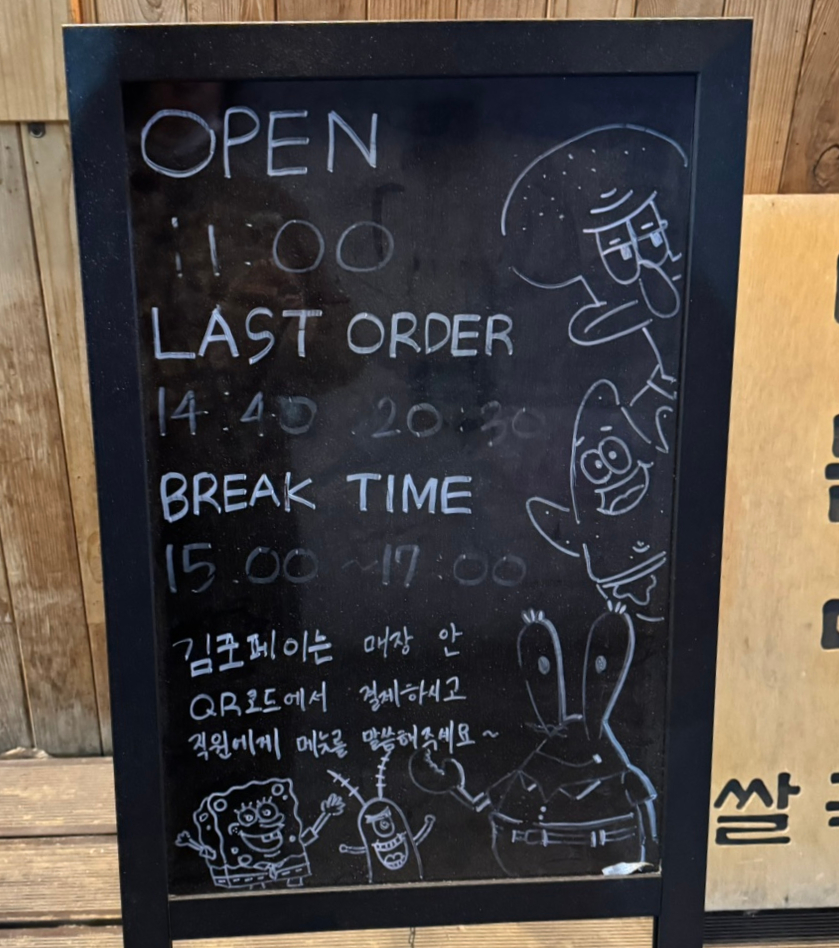 OPEN
11:00
LAST ORDER
14:40 20:30
BREAK TIME
15:00 ~ 17:00
김포페이는 매장 안
QR코드에서 결제하시고
직원에게 메뉴를 말씀해주세요~
쌀